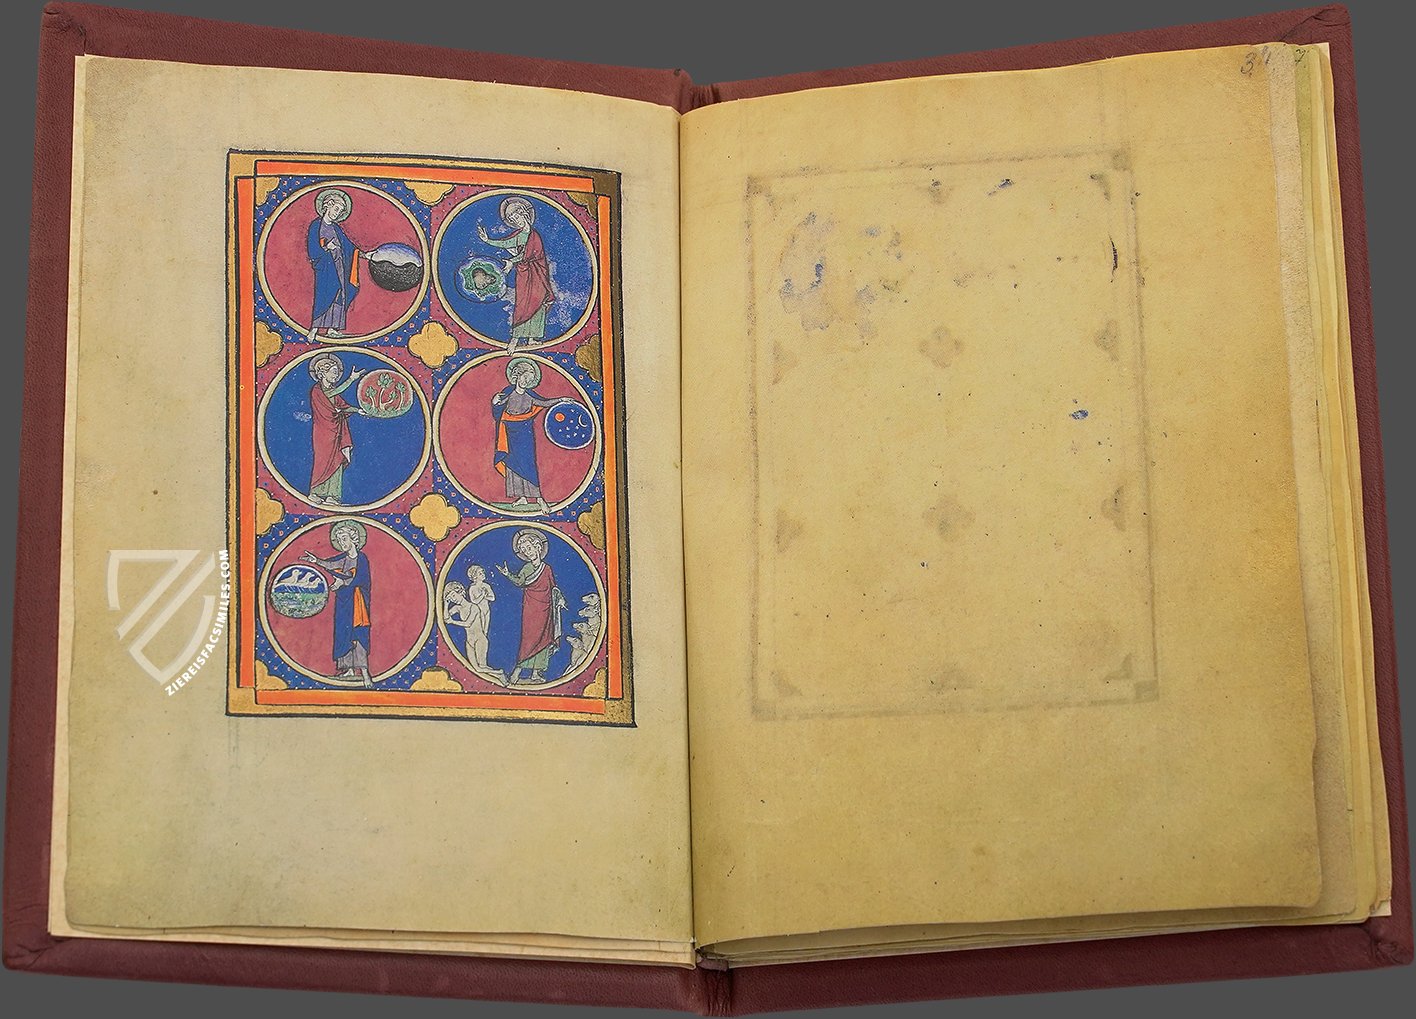 34
ZIEREISFACSIMILES.COM